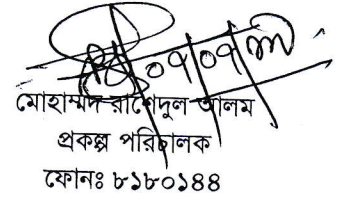 ০৭/০৭/
মোহাম্মদ রাশেদুল আলম
প্রকল্প পরিচালক
ফোনঃ ৮১৮০১৪৪